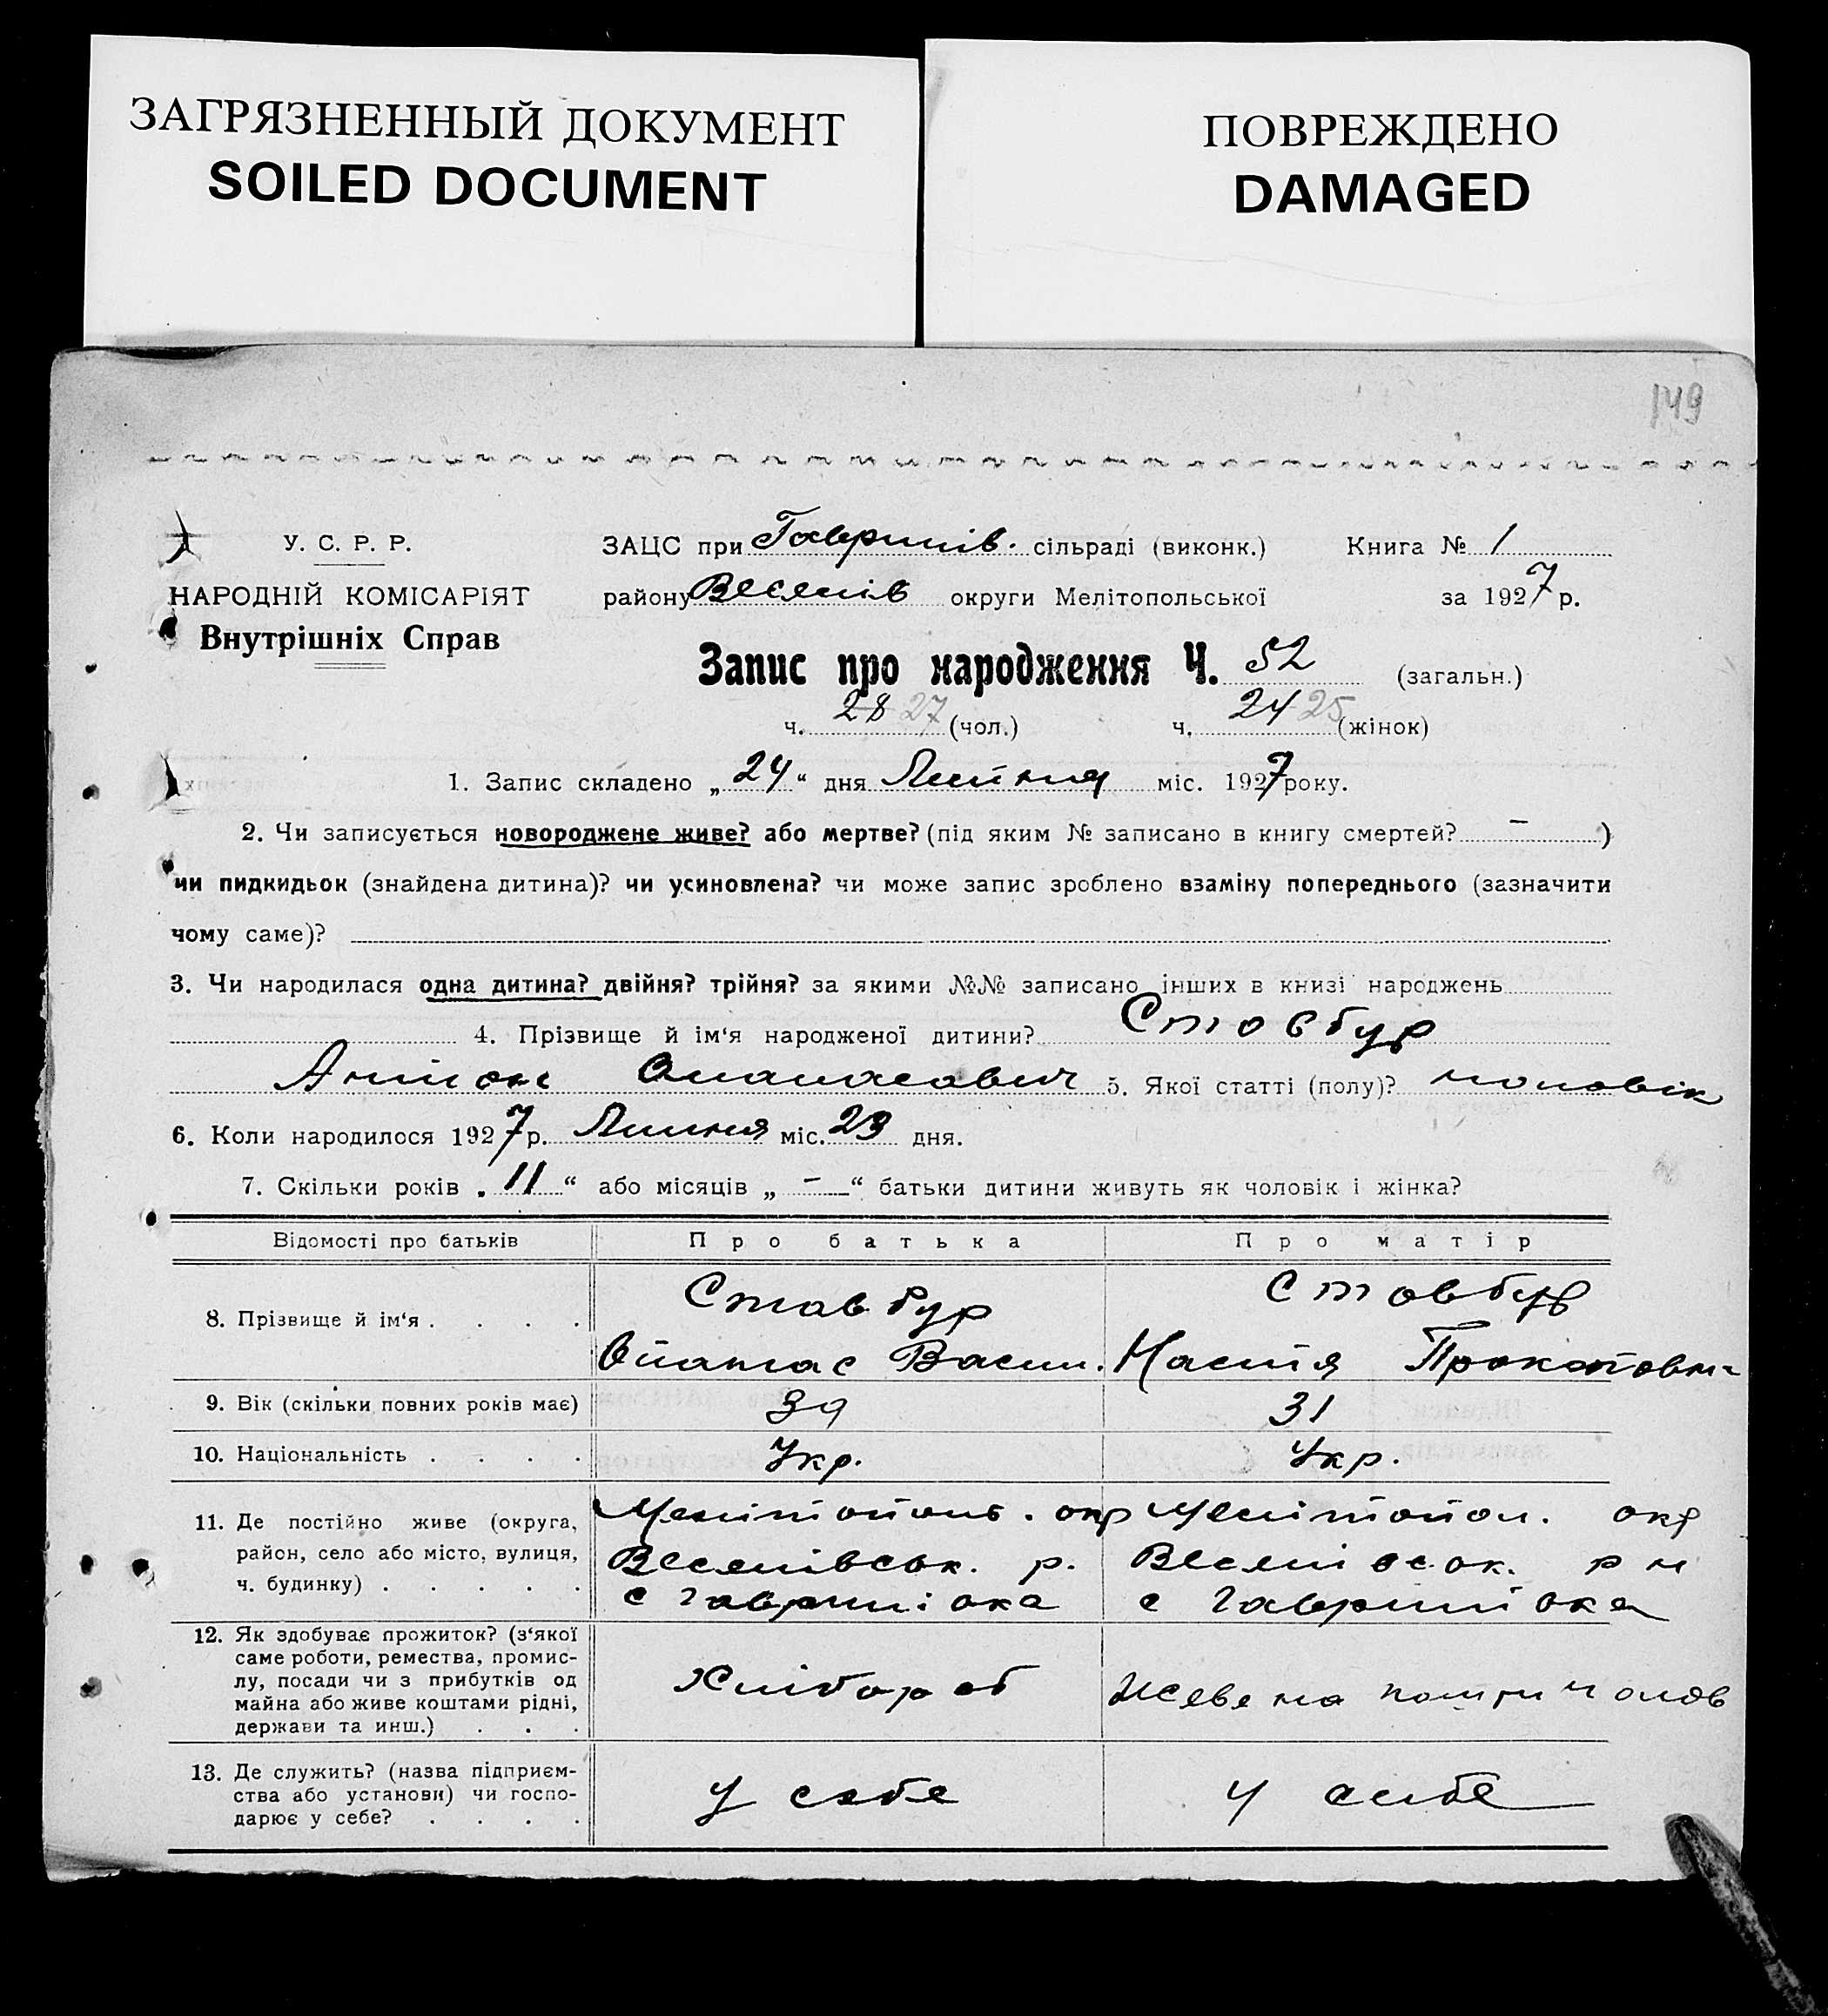 ЗАГРЯЗНЕННЫЙ ДОКУМЕНТ
SOILED DOCUMENT
ПОВРЕЖДЕНО
DAMAGED
149
У. С. Р. Р.
НАРОДНІЙ КОМІСАРІЯТ
Внутрішніх Справ
ЗАЦС при Гаврилів. сільраді (виконк.) Книга № 1
району Веселів округи Мелітопольської за 1927 р.
Запис про народження Ч. 52 (загальн.)
ч. 28 27 (чол.) ч. 24 25 (жінок)
1. Запис складено „24“ дня Липня міс. 1927 року.
2. Чи записується новороджене живе? або мертве? (під яким № записано в книгу смертей? – )
чи пидкидьок (знайдена дитина)? чи усиновлена? чи може запис зроблено взаміну попереднього (зазначити
чому саме)?
3. Чи народилася одна дитина? двійня? трійня? за якими №№ записано інших в книзі народжень
4. Прізвище й ім‘я народженої дитини? Стовбур
Антон Опанасович 5. Якої статті (полу)? чоловік
6. Коли народилося 1927 р. Липня міс. 23 дня.
7. Скільки років „11“ або місяців „–“ батьки дитини живуть як чоловік і жінка?
Відомості про батьків Про батька Про матір
8. Прізвище й ім‘я . . . . Стовбур Стовбур
Опанас Васил. Настя Прокоповн
9. Вік (скільки повних років має) 39 31
10. Національність . . . . Укр. Укр.
11. Де постійно живе (округа, район, село або місто, вулиця, ч. будинку) . . . . .
Мелітополь. окр Мелітопол. окр
Веселівськ. р. Веселівськ. р н
с Гаврилівка с Гаврилівка
12. Як здобуває прожиток? (з‘якої
саме роботи, ремества, промис-
лу, посади чи з прибутків од
майна або живе коштами рідні,
держави та инш.) . . .
Хлібороб Живе на кошти чолов
13. Де служить? (назва підприєм-
ства або установи) чи госпо-
дарює у себе? . . . .
У себе У себе